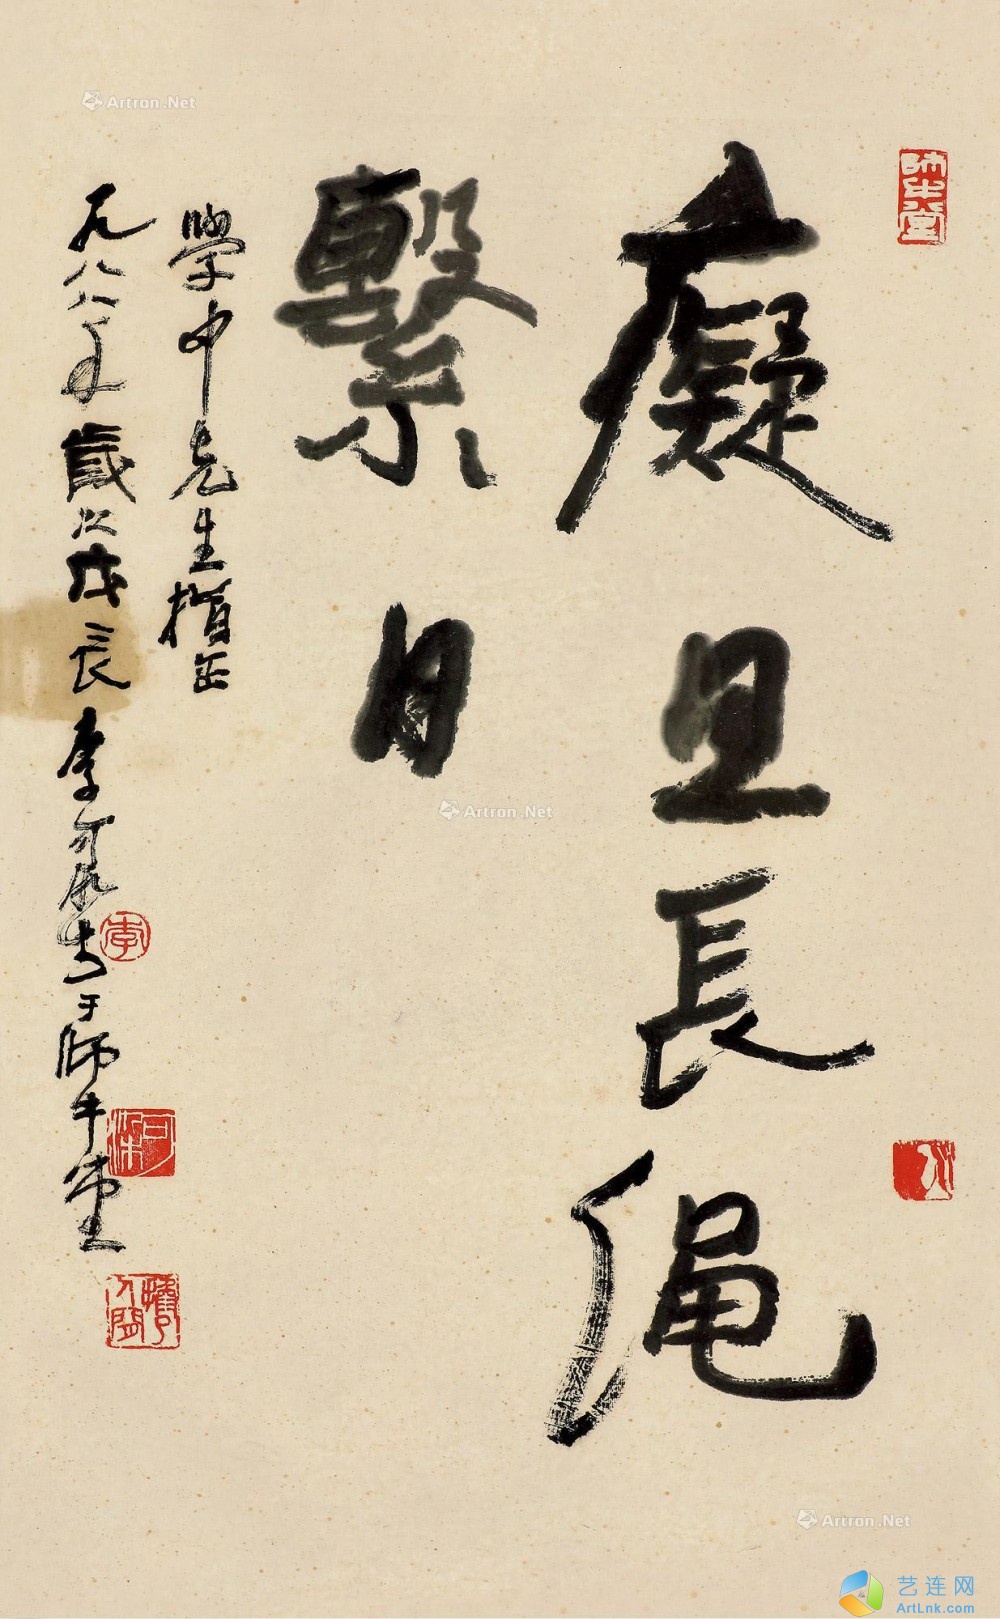 癡且長繩
繫日
學中先生指正
一九八八年歲次戊辰李可染書于師牛堂
師牛堂
李
可染
Artron.Net
Artron.Net
Artron.Net
艺连网
ArtLnk.com